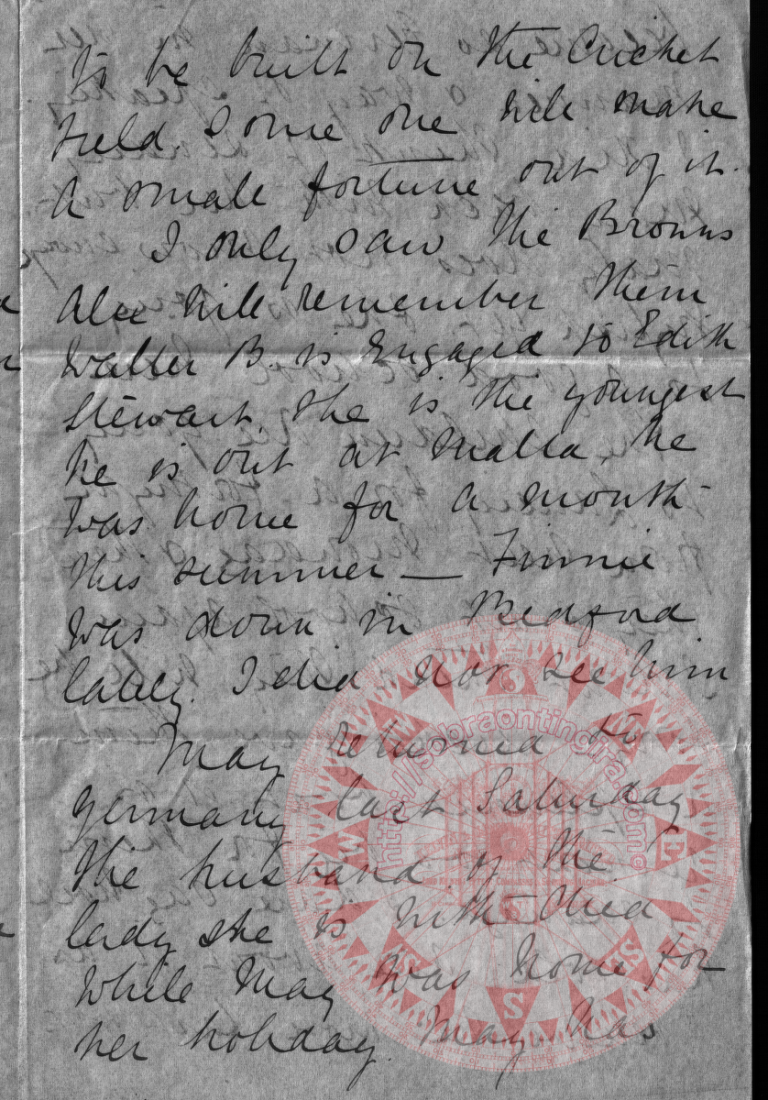 to be built on the Cricket
Field. Some one will make
a small fortune out of it.
I only saw the Browns
Alec will remember them
Walter B. is Engaged to Edith
Stewart. She is the youngest
he is out at Malta. he
was home for a month
this summer — Finnie
was down in Bedford
lately. I did not see him
May returned to
Germany last Saturday
the husband of the
lady she is with died
while May was home for
her holiday. May has